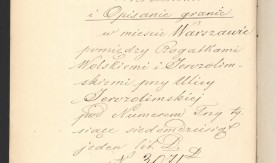 i Opisanie granic
w mieście Warszawie
pomiędzy Rogatkami
Wolskiemi i Jerozolim-
skiemi przy Ulicy
Jerozolimskiej
pod Numerem Trzy ty-
siące siedmdziesiąt
jeden lit. D.
N 3071 D